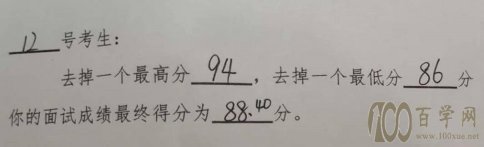 12号考生：
去掉一个最高分94，去掉一个最低分86分
你的面试成绩最终得分为88.40分。
100百学网
www.100xue.net